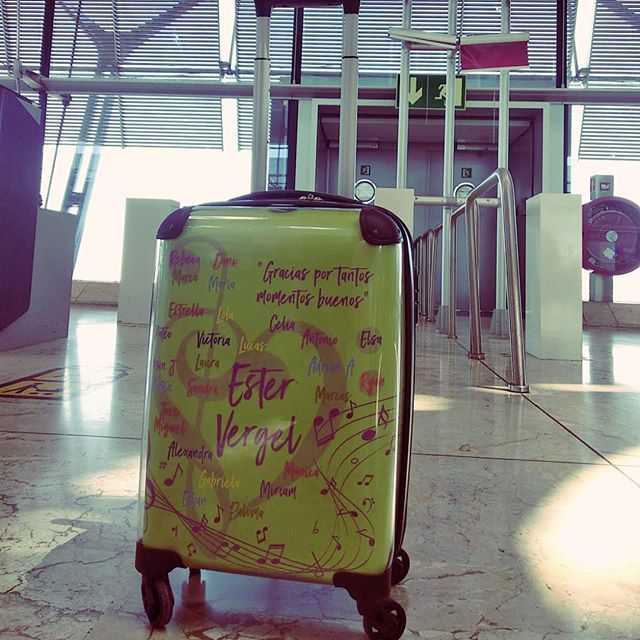 Rebeca Dani
Marco María
"Gracias por tantos
momentos buenos"
Estrella Lola
Celia
Victoria Lucas
Antonio Elsa
Laura
Adrián A
Sandra
Ester
Vergel
Marcos Ryan
Jose
Miguel
Alexandra
Gabriela
Mónica
Miriam
Paloma